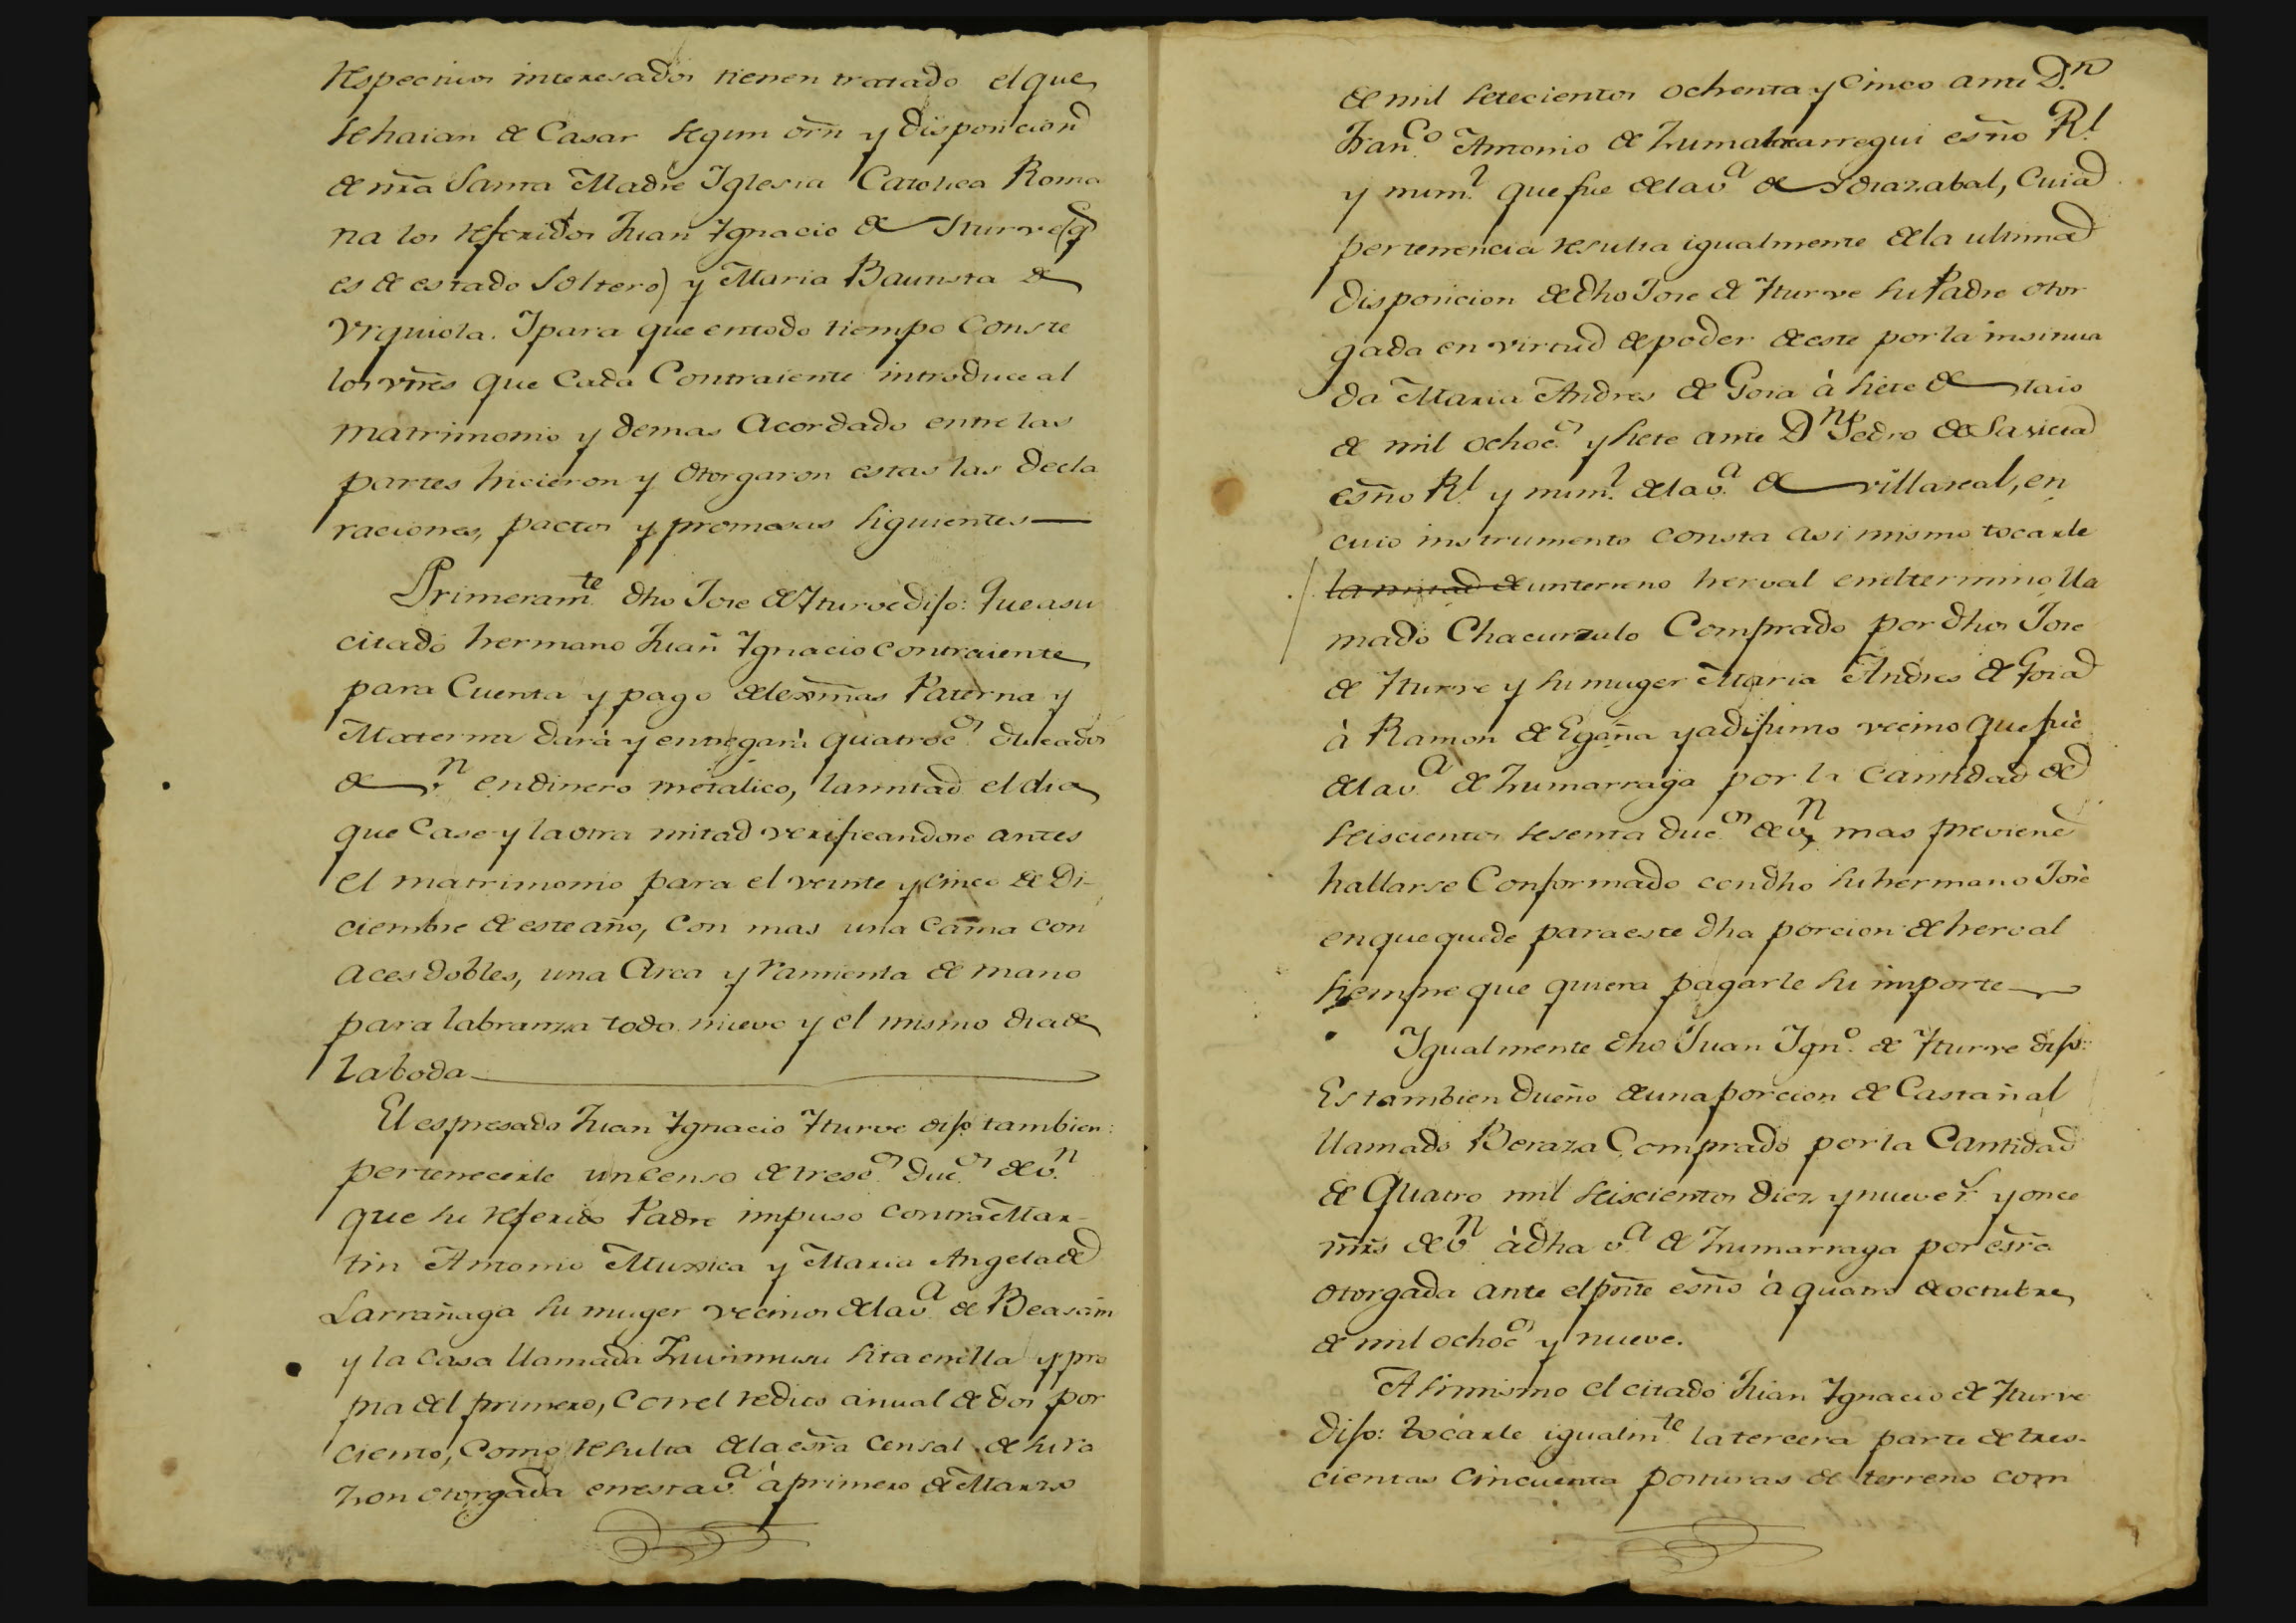 respectivos interesados tienen tratado el que
se haian de Casar segun orñ y disposicion
de nr̃a Santa Madre Iglesia Catolica Roma
na los referidos Juan Ignacio de Iturve (q
es de estado soltero) y Maria Bautista de
Vrquiola. I para que en todo tiempo Conste
los vñes que Cada Contraiente introduce al
matrimonio y demas Acordado entre las
partes hicieron y otorgaron estas las decla
raciones, pactos y promesas siguientes
Primeramte dho Jose de Iturve dijo: Que a su
citado hermano Juan Ignacio contraiente
para Cuenta y pago de lexmas Paterna y
Materna dará y entregará quatrocos ducados
de vn en dinero metalico, la mitad el dia
que Case y la otra mitad verificandose antes
el matrimonio para el veinte y cinco de Di-
ciembre de este año, con mas una Cama con
aces dobles, una Arca y ramienta de mano
para labranza todo nuevo y el mismo dia de
la boda
El espresado Juan Ignacio Iturve dijo tambien:
pertenecerle un Censo de tresos duos de vn
que su referido Padre impuso contra Mar-
tin Antonio Muxica y Maria Angela de
Larrañaga su muger vecinos de la va de Beasain
y la casa llamada sita en ella y pro
pia del primero, con el redito anual de dos por
ciento, Como resulta de la esr̃a Censal de su ra
zon otorgada en esta va à primero de Marzo
de mil setecientos ochenta y Cinco ante Dn
Franco Antonio de Zumalacarregui esño Rl
y numl que fue de la va de Ydiazabal, Cuia
pertenencia resulta igualmente de la ultima
disposicion de dho Jose de Iturve su Padre otor
gada en virtud de poder de este por la insinua
da Maria Andres de Goia à siete de Maio
de mil ochocos y siete ante Dn Pedro de Sasieta
esño Rl y numl de la va de villareal, en
cuio instrumento consta asi mismo tocarle
la mitad de un terreno herval en el termino lla
mado Chacurzulo Comprado por dhos Jose
de Iturve y su muger Maria Andres de Goia
à Ramon de Egaña ya difunto vecino que fué
de la va de Zumarraga por la Cantidad de
seiscientos sesenta ducos de vn, mas previene
hallarse Conformado con dho su hermano José
en que quede para este dha porcion de herval
siempre que quiera pagarle su importe
Igualmente dho Juan Igno de Iturve dijo:
Es tambien Dueño de una porcion de Castañal
llamado Beraza Comprado por la Cantidad
de Quatro mil seiscientos diez y nueve rs y once
mr̃s de vn à dha va de Zumarraga por esr̃a
otorgada ante el pñte esño à quatro de octubre
de mil ochocos y nueve.
Asimismo el citado Juan Ignacio de Iturve
dijo: tocarle igualmte la tercera parte de tres-
cientas Cincuenta posturas de terreno com